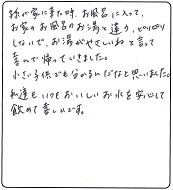 孫が家に来た時、お風呂に入って、
お家のお風呂のお湯と違う、ピリピリ
しないで、お湯がやさしいねと言って
喜んで帰っていきました。
小さい子供でも分かるんだなと思いました。
私達もいつもおいしいお水を安心して
飲めて嬉しいです。